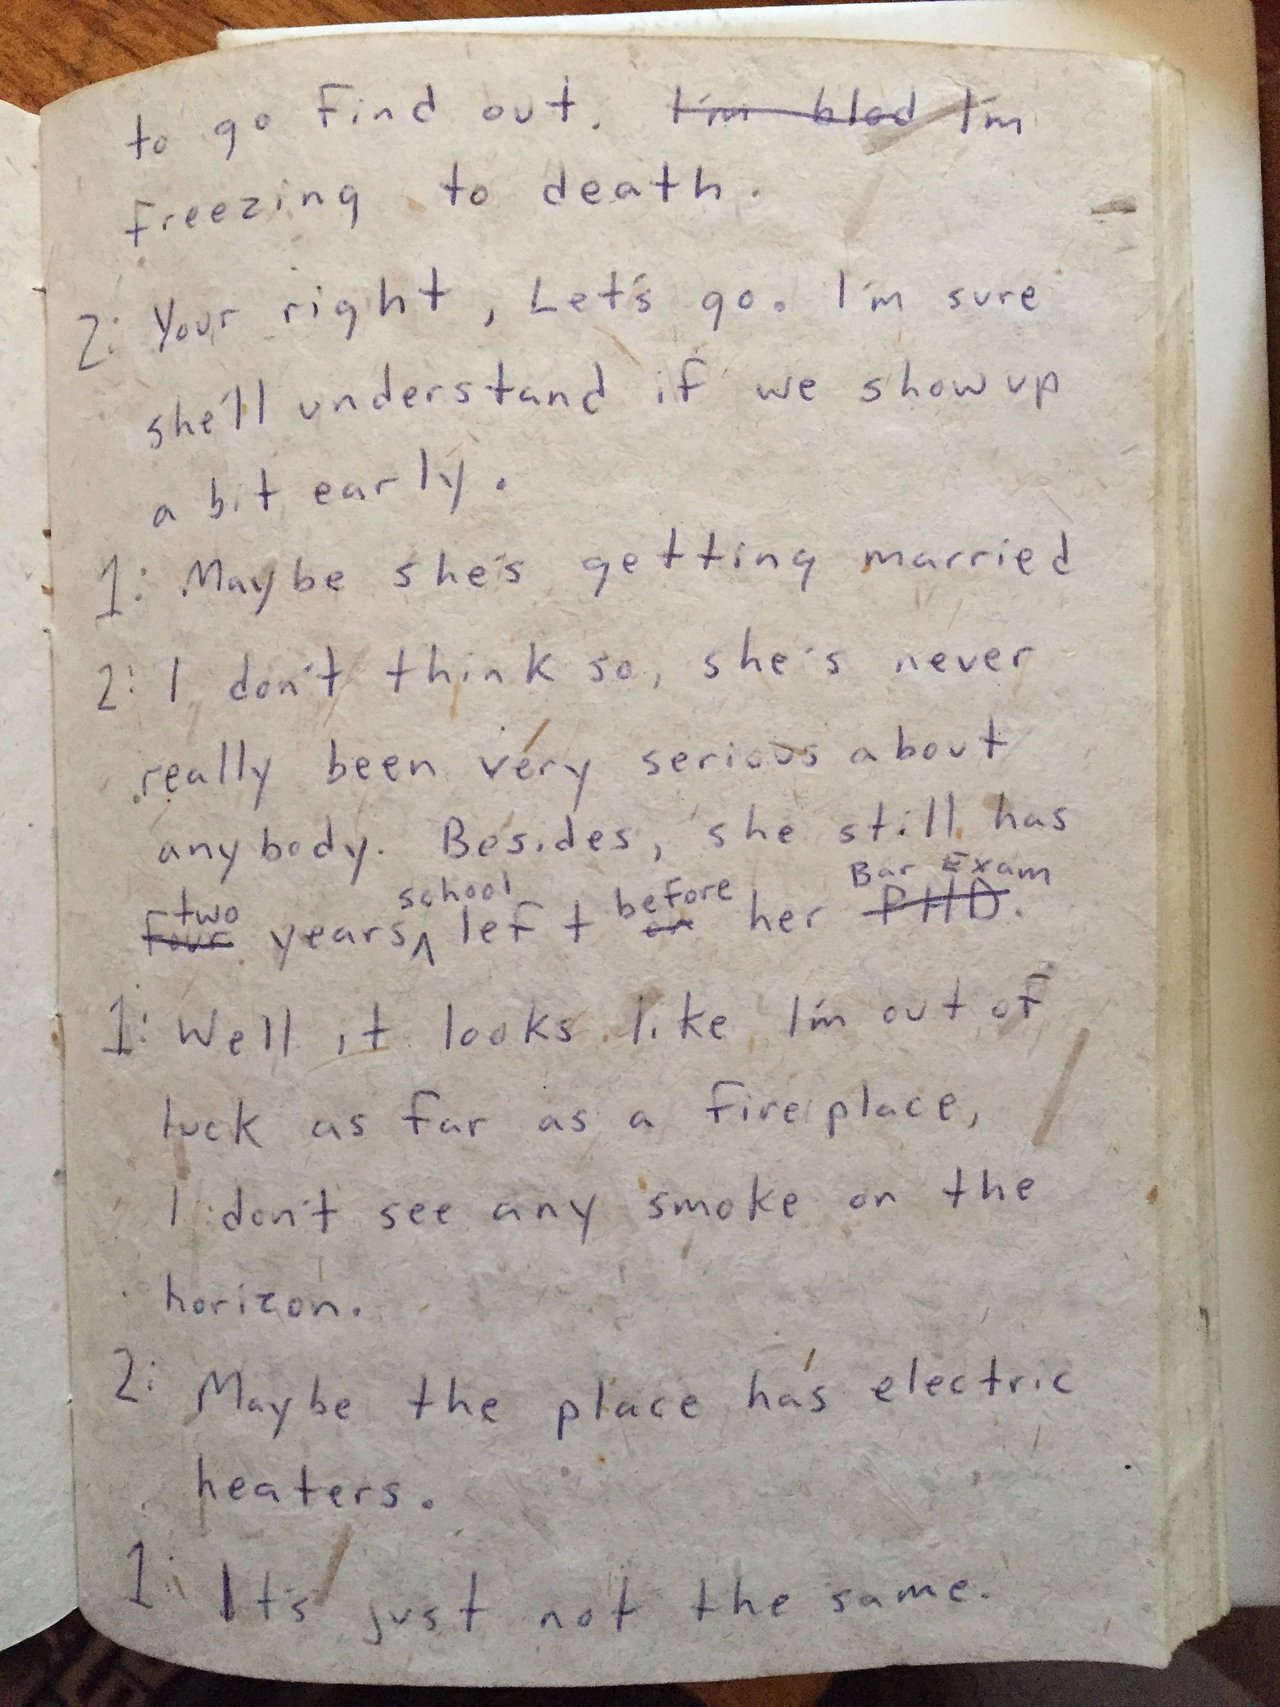 to go find out. I'm blad I'm
freezing to death.
2: Your right, Let's go. I'm sure
she'll understand if we show up
a bit early.
1: Maybe she's getting married
2: I don't think so, she's never
really been very serious about
anybody. Besides, she still has
two school before Bar Exam
four years ^ left on her PHD.
1: Well it looks like I'm out of
luck as far as a fireplace,
I don't see any smoke on the
horizon.
2: Maybe the place has electric
heaters.
1: It's just not the same.